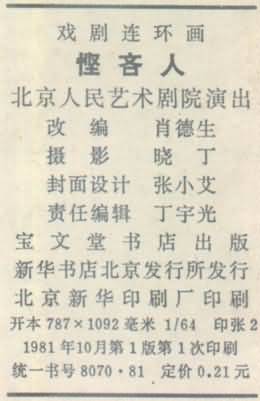 戏剧连环画
悭吝人
北京人民艺术剧院演出
改编 肖德生
摄影 晓丁
封面设计 张小艾
责任编辑 丁宇光
宝文堂书店出版
新华书店北京发行所发行
北京新华印刷厂印刷
开本 787×1092 毫米 1/64 印张 2
1981 年 10 月第 1 版第 1 次印刷
统一书号 8070·81 定价 0.21 元